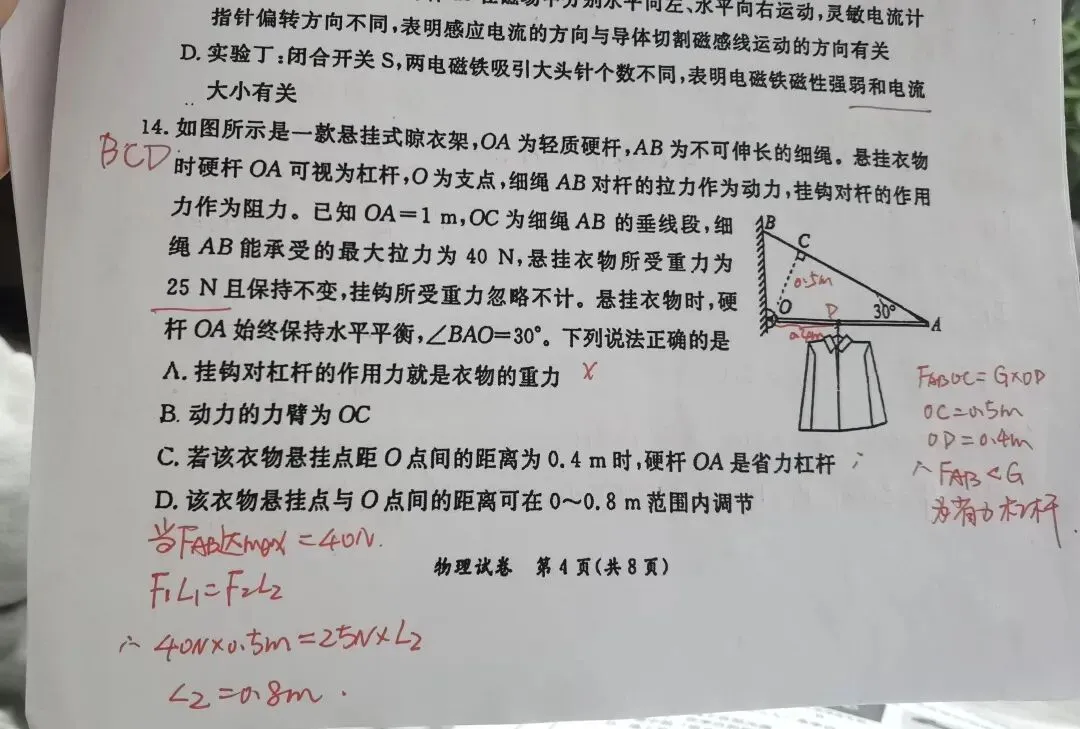 水平向左、水平向右运动,灵敏电流计
指针偏转方向不同,表明感应电流的方向与导体切割磁感线运动的方向有关
D. 实验丁:闭合开关 S,两电磁铁吸引大头针个数不同,表明电磁铁磁性强弱和电流
大小有关
14. 如图所示是一款悬挂式晾衣架,OA 为轻质硬杆,AB 为不可伸长的细绳。悬挂衣物
BCD
时硬杆 OA 可视为杠杆,O 为支点,细绳 AB 对杆的拉力作为动力,挂钩对杆的作用
力作为阻力。已知 OA=1 m,OC 为细绳 AB 的垂线段,细
绳 AB 能承受的最大拉力为 40 N,悬挂衣物所受重力为
25 N 且保持不变,挂钩所受重力忽略不计。悬挂衣物时,硬
杆 OA 始终保持水平平衡,∠BAO=30°。下列说法正确的是
B
C
0.5m
O
D
30°
A
A. 挂钩对杠杆的作用力就是衣物的重力 x
B. 动力的力臂为 OC
C. 若该衣物悬挂点距 O 点间的距离为 0.4 m 时,硬杆 OA 是省力杠杆
D. 该衣物悬挂点与 O 点间的距离可在 0~0.8 m 范围内调节
FABOC=G×OD
OC=0.5m
OD=0.4m
∴ FAB<G
为省力杠杆
当FAB达max=40N.
F1L1=F2L2
∴ 40N×0.5m=25N×L2
L2=0.8m.
物理试卷 第 4 页(共 8 页)